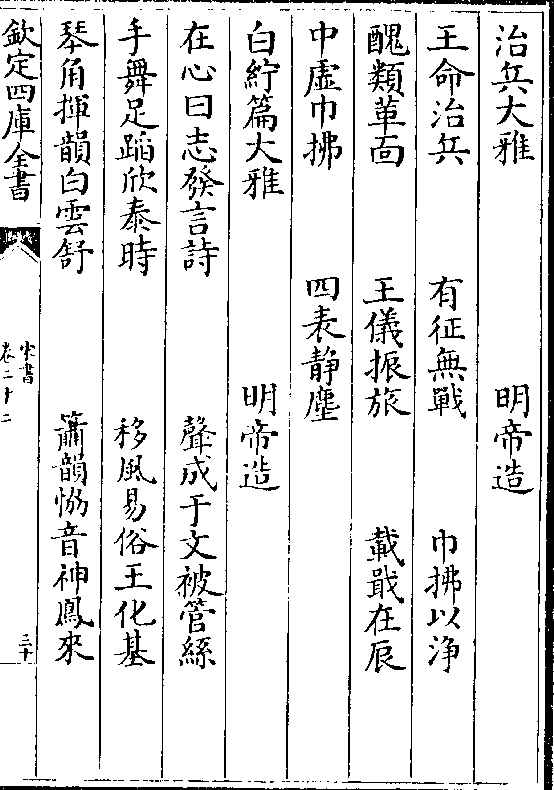 治兵大雅　明帝造
王命治兵　有征無戰　巾拂以浄
醜類革面　王儀振旅　載戢在辰
中虚巾拂　四表静塵
白紵篇大雅　明帝造
在心曰志發言詩　聲成于文被管絲
手舞足蹈欣泰時　移風易俗王化基
琴角揮韻白雲舒　簫韻恊音神鳳來
欽定四庫全書　宋書卷二十二　三十